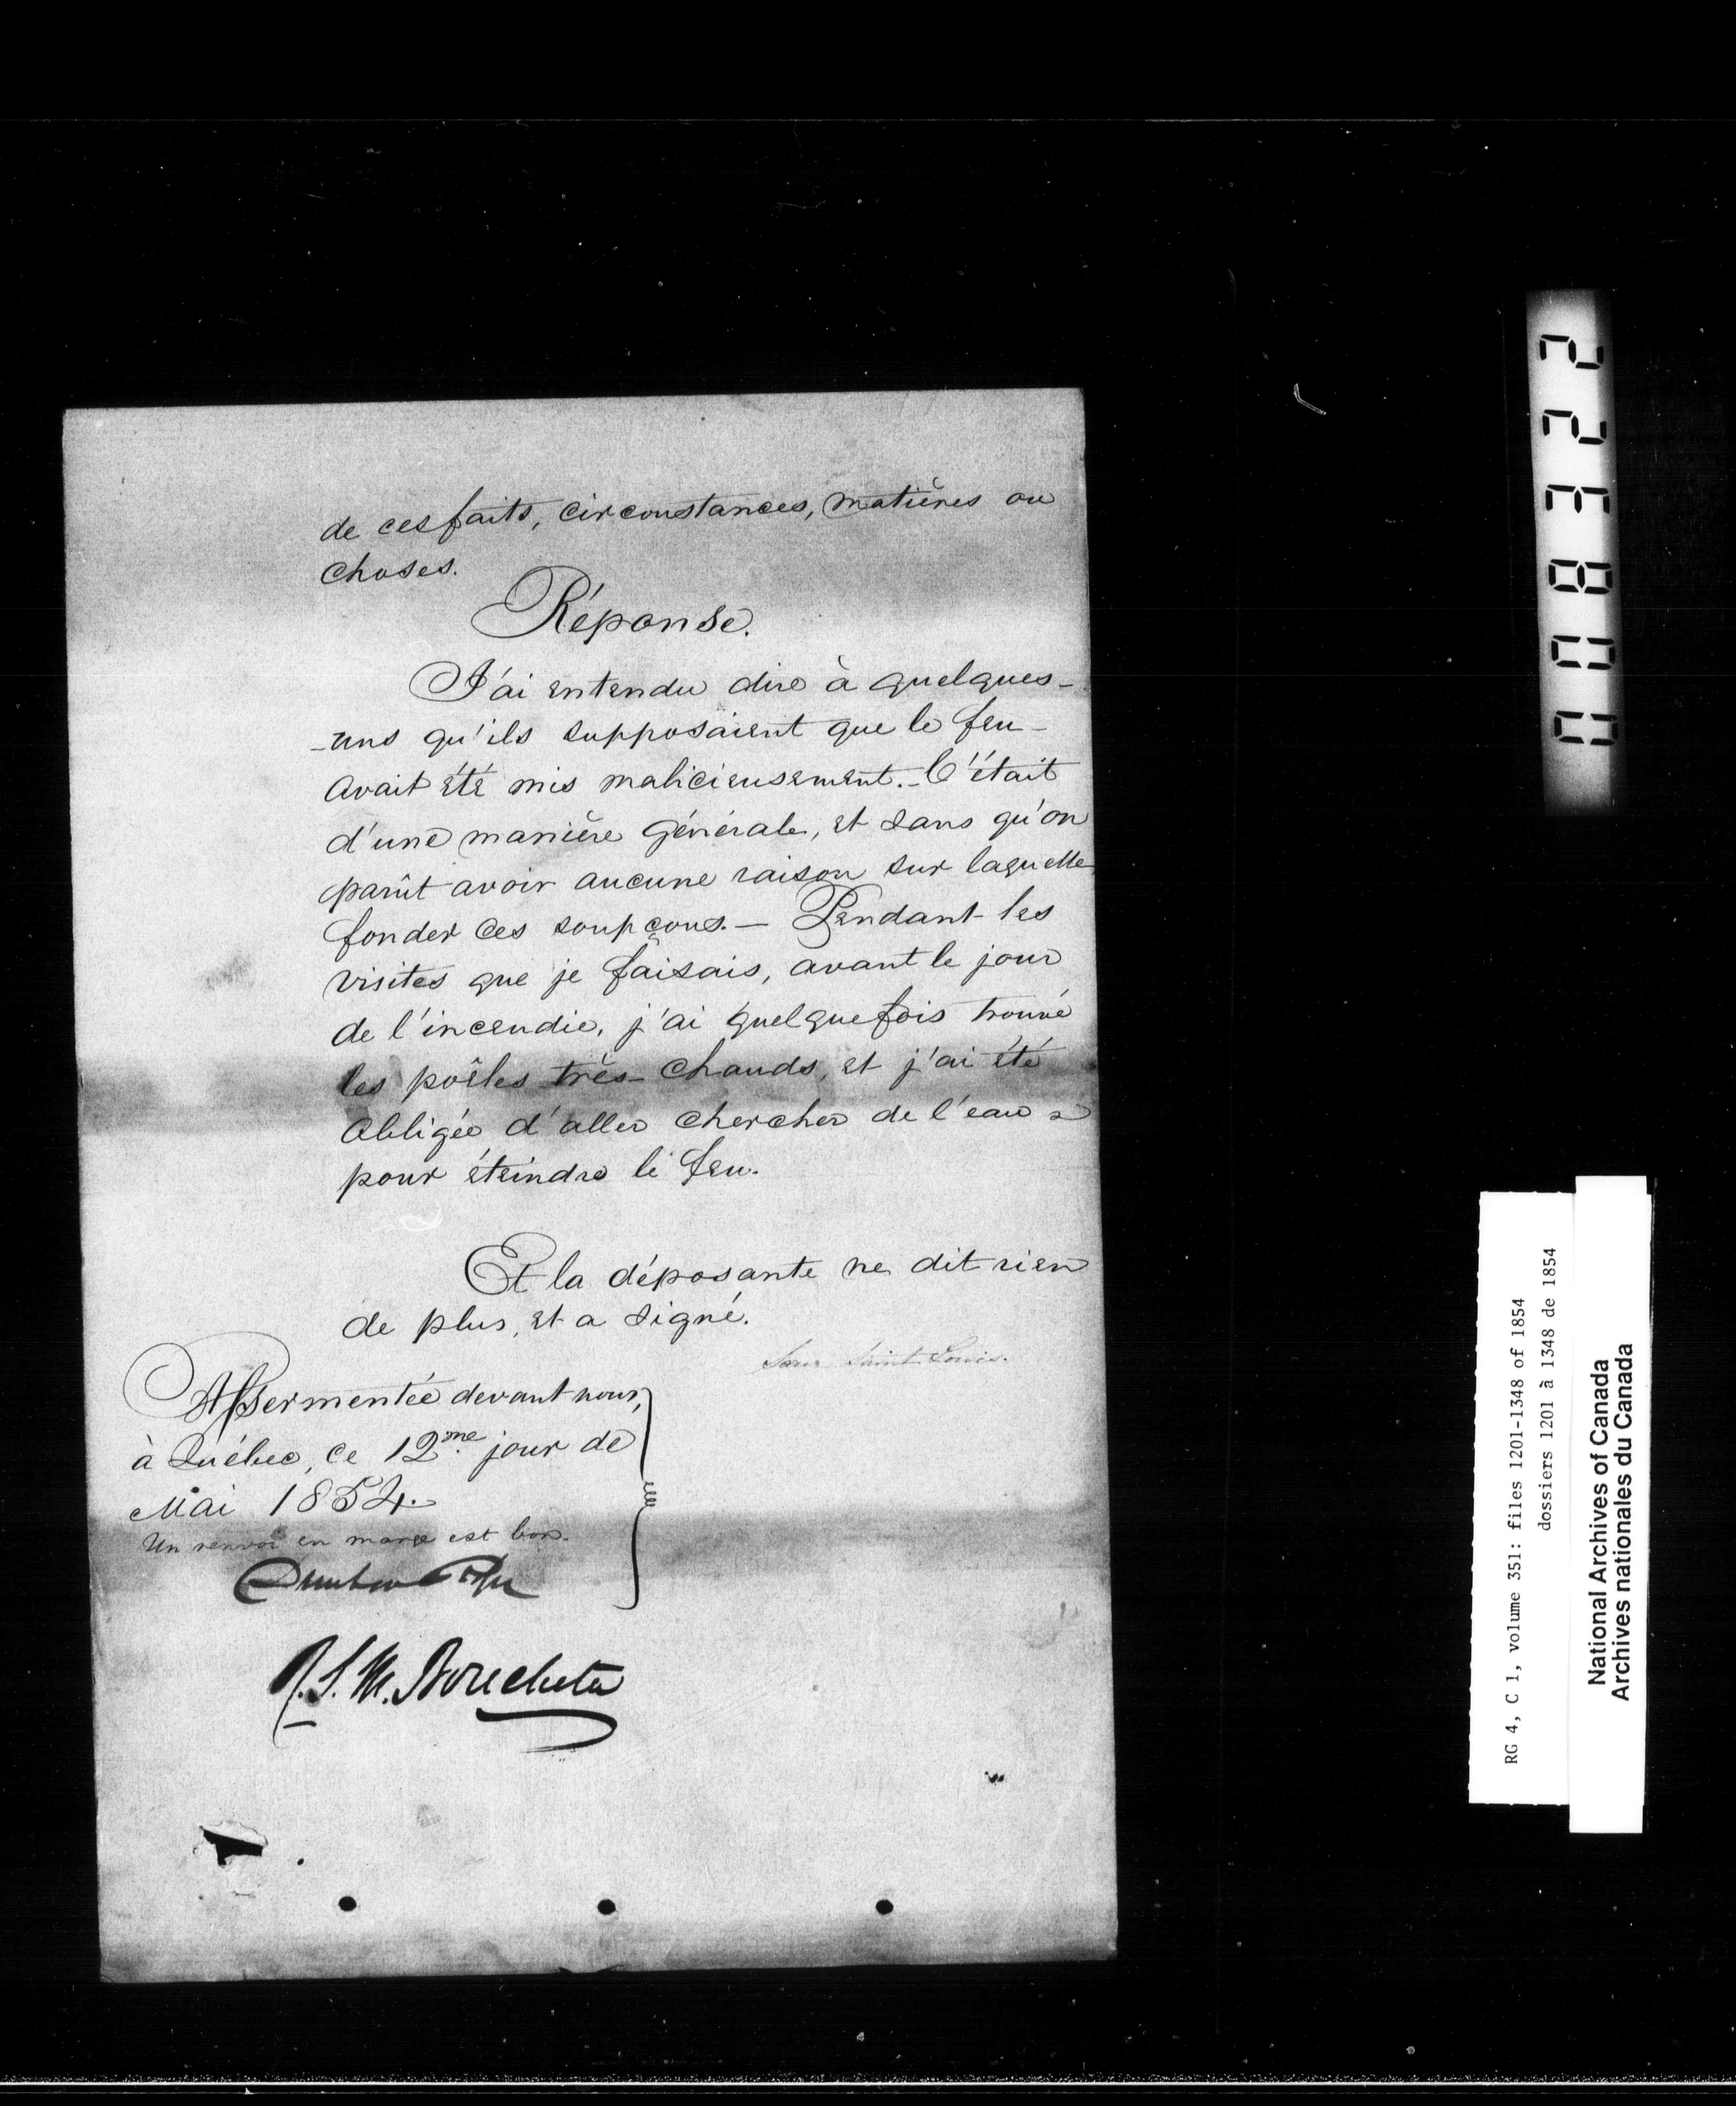 de ces faits, circonstances, matières ou
choses.
Réponse.
J'ai entendu dire à quelques-
-uns qu'ils supposaient que le feu
avait été mis malicieusement. - C'était
d'une manière générale, et sans qu'on
parût avoir aucune raison sur laquelle
fonder ces soupçons. — Pendant les
visites que je faisais, avant le jour
de l'incendie, j'ai quelquefois trouvé
les poêles très chauds, et j'ai été
obligée d'aller chercher de l'eau
pour éteindre le feu.
Et la déposante ne dit rien
de plus, et a signé.
Sœur Saint Louis.
Assermentée devant nous,
à Québec, ce 12me jour de
Mai 1854.
Un renvoi en marge est bon.
R. S. M. Bouchette
022380
RG 4, C 1, volume 351: files 1201-1348 of 1854
dossiers 1201 à 1348 de 1854
National Archives of Canada
Archives nationales du Canada